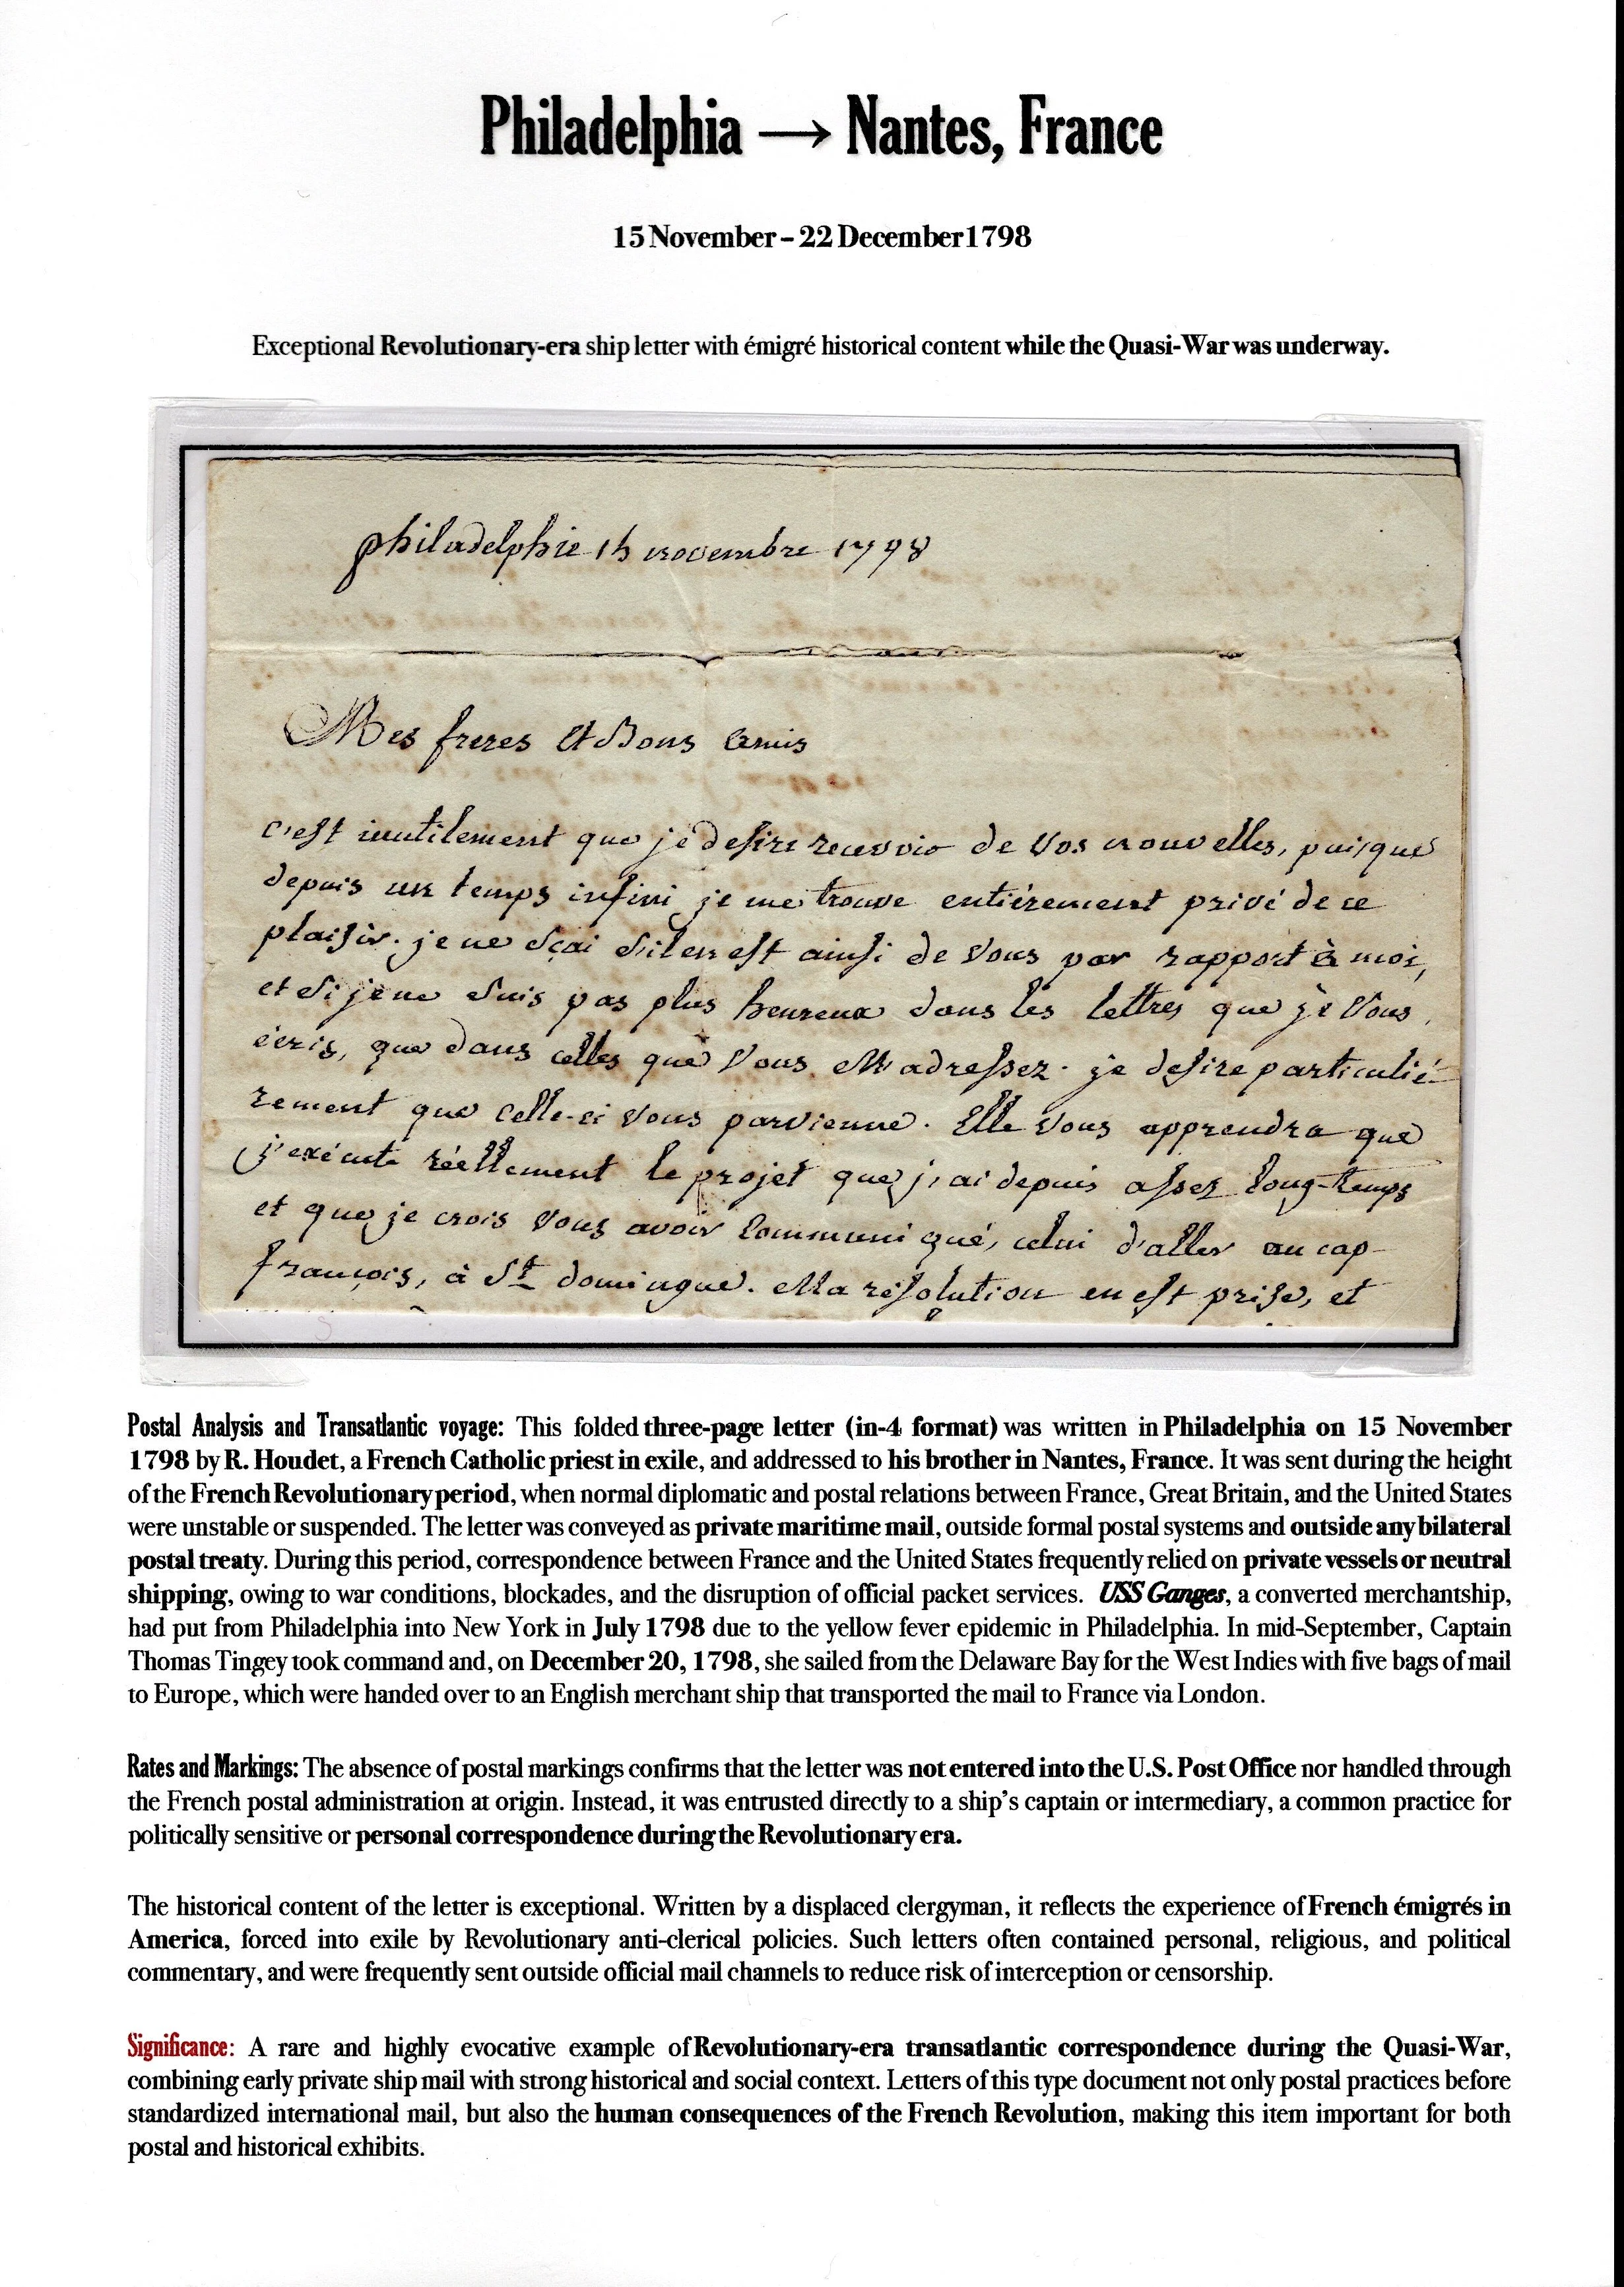 Philadelphia → Nantes, France
15 November – 22 December 1798
Exceptional Revolutionary-era ship letter with émigré historical content while the Quasi-War was underway.
philadelphie 15 novembre 1798
Mes freres et Bons amis
c'est inutilement que je desire recevoir de vos nouvelles, puisque
depuis un temps infini je me trouve entiérement privé de ce
plaisir. je ne sçai s'il en est ainsi de vous par rapport à moi,
et si je ne suis pas plus heureux dans les lettres que je vous
écris, que dans celles que vous m'adressez. je desire particulié-
rement que celle-ci vous parvienne. Elle vous apprendra que
j'exécute réellement le projet que j'ai depuis assez long-temps
et que je crois vous avoir communiqué, celui d'aller au cap-
françois, à St domingue. Ma résolution en est prise, et
Postal Analysis and Transatlantic voyage: This folded three-page letter (in-4 format) was written in Philadelphia on 15 November
1798 by R. Houdet, a French Catholic priest in exile, and addressed to his brother in Nantes, France. It was sent during the height
of the French Revolutionary period, when normal diplomatic and postal relations between France, Great Britain, and the United States
were unstable or suspended. The letter was conveyed as private maritime mail, outside formal postal systems and outside any bilateral
postal treaty. During this period, correspondence between France and the United States frequently relied on private vessels or neutral
shipping, owing to war conditions, blockades, and the disruption of official packet services. USS Ganges, a converted merchantship,
had put from Philadelphia into New York in July 1798 due to the yellow fever epidemic in Philadelphia. In mid-September, Captain
Thomas Tingey took command and, on December 20, 1798, she sailed from the Delaware Bay for the West Indies with five bags of mail
to Europe, which were handed over to an English merchant ship that transported the mail to France via London.
Rates and Markings: The absence of postal markings confirms that the letter was not entered into the U.S. Post Office nor handled through
the French postal administration at origin. Instead, it was entrusted directly to a ship's captain or intermediary, a common practice for
politically sensitive or personal correspondence during the Revolutionary era.
The historical content of the letter is exceptional. Written by a displaced clergyman, it reflects the experience of French émigrés in
America, forced into exile by Revolutionary anti-clerical policies. Such letters often contained personal, religious, and political
commentary, and were frequently sent outside official mail channels to reduce risk of interception or censorship.
Significance: A rare and highly evocative example of Revolutionary-era transatlantic correspondence during the Quasi-War,
combining early private ship mail with strong historical and social context. Letters of this type document not only postal practices before
standardized international mail, but also the human consequences of the French Revolution, making this item important for both
postal and historical exhibits.